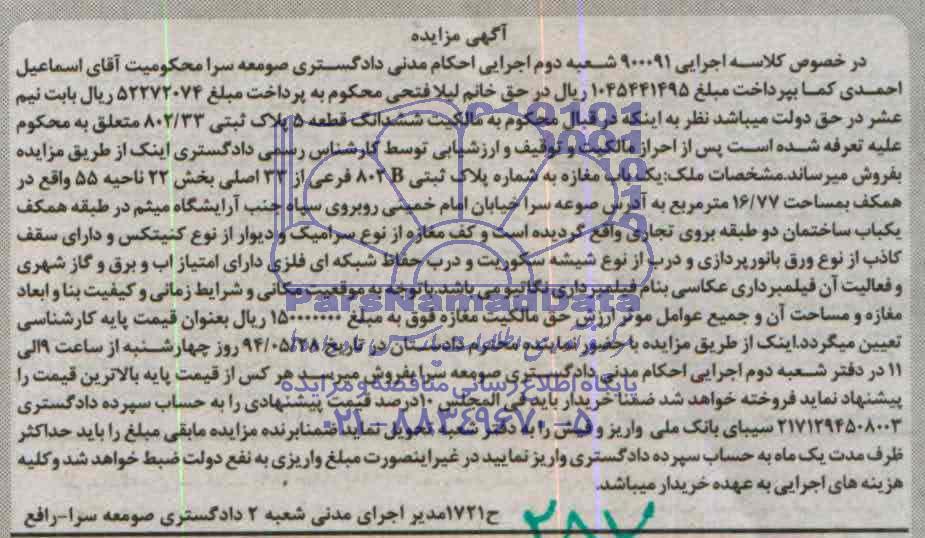 آگهی مزایده
در خصوص کلاسه اجرایی ۹۰۰۰۹۱ شعبه دوم اجرایی احکام مدنی دادگستری صومعه سرا محکومیت آقای اسماعیل
احمدی کما بپرداخت مبلغ ۱۰۴۵۴۴۱۴۹۵ ریال در حق خانم لیلا فتحی محکوم به پرداخت مبلغ ۵۲۲۷۲۰۷۴ ریال بابت نیم
عشر در حق دولت میباشد نظر به اینکه در قبال محکوم به مالکیت ششدانگ قطعه ۵ پلاک ثبتی ۸۰۲/۳۳ متعلق به محکوم
علیه تعرفه شده است پس از احراز مالکیت و توقیف و ارزشیابی توسط کارشناس رسمی دادگستری اینک از طریق مزایده
بفروش میرساند.مشخصات ملک:یک باب مغازه به شماره پلاک ثبتی ۸۰۲B فرعی از ۳۳ اصلی بخش ۲۲ ناحیه ۵۵ واقع در
همکف بمساحت ۱۶/۷۷ مترمربع به آدرس صوعه سرا خیابان امام خمینی روبروی سپاه جنب آرایشگاه میثم در طبقه همکف
یکباب ساختمان دو طبقه بروی تجاری واقع گردیده است و کف مغازه از نوع سرامیک و دیوار از نوع کنیتکس و دارای سقف
کاذب از نوع ورق بانورپردازی و درب از نوع شیشه سکوریت و درب حفاظ شبکه ای فلزی دارای امتیاز اب و برق و گاز شهری
و فعالیت آن فیلمبرداری عکاسی بنام فیلمبرداری نگاتیو می باشد.باتوجه به موقعیت مکانی و شرایط زمانی و کیفیت بنا و ابعاد
مغازه و مساحت آن و جمیع عوامل موثر ارزش حق مالکیت مغازه فوق به مبلغ ریال بعنوان قیمت پایه کارشناسی
تعیین میگردد.اینک از طریق مزایده با حضور نماینده محترم دادستان در تاریخ ۹۴/۰۵/۲۸ روز چهارشنبه از ساعت ۹الی
۱۱ در دفتر شعبه دوم اجرایی احکام مدنی دادگستری صومعه سرا بفروش میرسد هر کس از قیمت پایه بالاترین قیمت را
پیشنهاد نماید فروخته خواهد شد ضمنا خریدار باید فی المجلس ۱۰درصد قیمت پیشنهادی را به حساب سپرده دادگستری
۲۱۷۱۲۹۴۵۰۸۰۰۳ سیبای بانک ملی واریز و فیش را به دفتر شعبه تحویل نماید ضمنابرنده مزایده مابقی مبلغ را باید حداکثر
ظرف مدت یک ماه به حساب سپرده دادگستری واریز نمایید در غیر اینصورت مبلغ واریزی به نفع دولت ضبط خواهد شد و کلیه
هزینه های اجرایی به عهده خریدار میباشد.
ح۱۷۲۱مدیر اجرای مدنی شعبه ۲ دادگستری صومعه سرا-رافع
ParsNamadData
پایگاه اطلاع رسانی مناقصه و مزایده
۰۲۱-۸۸۳۴۹۶۷۰-۵